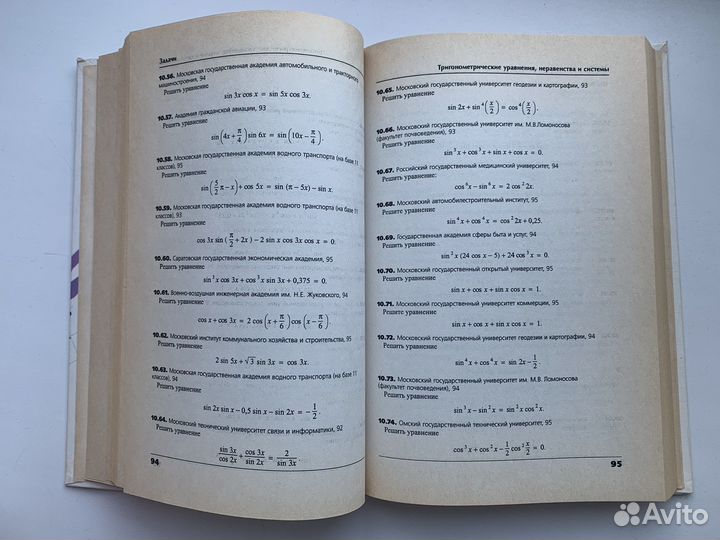 Задачи
10.56. Московская государственная академия автомобильного и тракторного
машиностроения, 94
Решить уравнение
sin 3x cos x = sin 5x cos 3x.
10.57. Академия гражданской авиации, 93
Решить уравнение
sin(4x + π/4) sin 6x = sin(10x − π/4).
10.58. Московская государственная академия водного транспорта (на базе 11
классов), 95
Решить уравнение
sin(5/2 π − x) + cos 5x = sin (π − 5x) − sin x.
10.59. Московская государственная академия водного транспорта (на базе 11
классов), 93
Решить уравнение
cos 3x sin (π/2 + 2x) − 2 sin x cos 3x cos x = 0.
10.60. Саратовская государственная экономическая академия, 95
Решить уравнение
sin³x cos 3x + cos³x sin 3x + 0,375 = 0.
10.61. Военно-воздушная инженерная академия им. Н.Е. Жуковского, 94
Решить уравнение
cos x + cos 3x = 2 cos(x + π/6) cos(x − π/6).
10.62. Московский институт коммунального хозяйства и строительства, 95
Решить уравнение
2 sin 5x + √3 sin 3x = cos 3x.
10.63. Московская государственная академия водного транспорта (на базе 11
классов), 94
Решить уравнение
sin 2x sin x − 0,5 sin x − sin 2x = −1/2.
10.64. Московский технический университет связи и информатики, 92
Решить уравнение
sin 3x/cos 2x + cos 3x/sin 2x = 2/sin 3x.
94
Тригонометрические уравнения, неравенства и системы
10.65. Московский государственный университет геодезии и картографии, 93
Решить уравнение
sin 2x + sin⁴(x/2) = cos⁴(x/2).
10.66. Московский государственный университет им. М.В.Ломоносова
(факультет почвоведения), 93
Решить уравнение
sin³x + cos³x + sin x + cos x = 0.
10.67. Российский государственный медицинский университет, 94
Решить уравнение:
cos⁴x − sin⁴x = 2 cos²2x.
10.68. Московский автомобилестроительный институт, 95
Решите уравнение
sin⁴x + cos⁴x = cos²2x + 0,25.
10.69. Государственная академия сферы быта и услуг, 94
Решить уравнение
sin²x (24 cos x − 5) + 24 cos³x = 0.
10.70. Московский государственный открытый университет, 95
Решить уравнение
sin x + cos x + sin x cos x = 1.
10.71. Московский государственный университет коммерции, 95
Решить уравнение
sin x + cos x + sin x cos x = 1.
10.72. Московский государственный университет геодезии и картографии, 94
Решить уравнение
sin⁴x + cos⁴x = sin 2x − 1/2.
10.73. Московский государственный университет им. М.В. Ломоносова
(факультет почвоведения), 94
Решить уравнение
sin³x − sin²x = sin²x cos²x.
10.74. Омский государственный технический университет, 95
Решить уравнение
cos³x + cos²x − 1/2 cos²x/2 = 0.
95
Avito